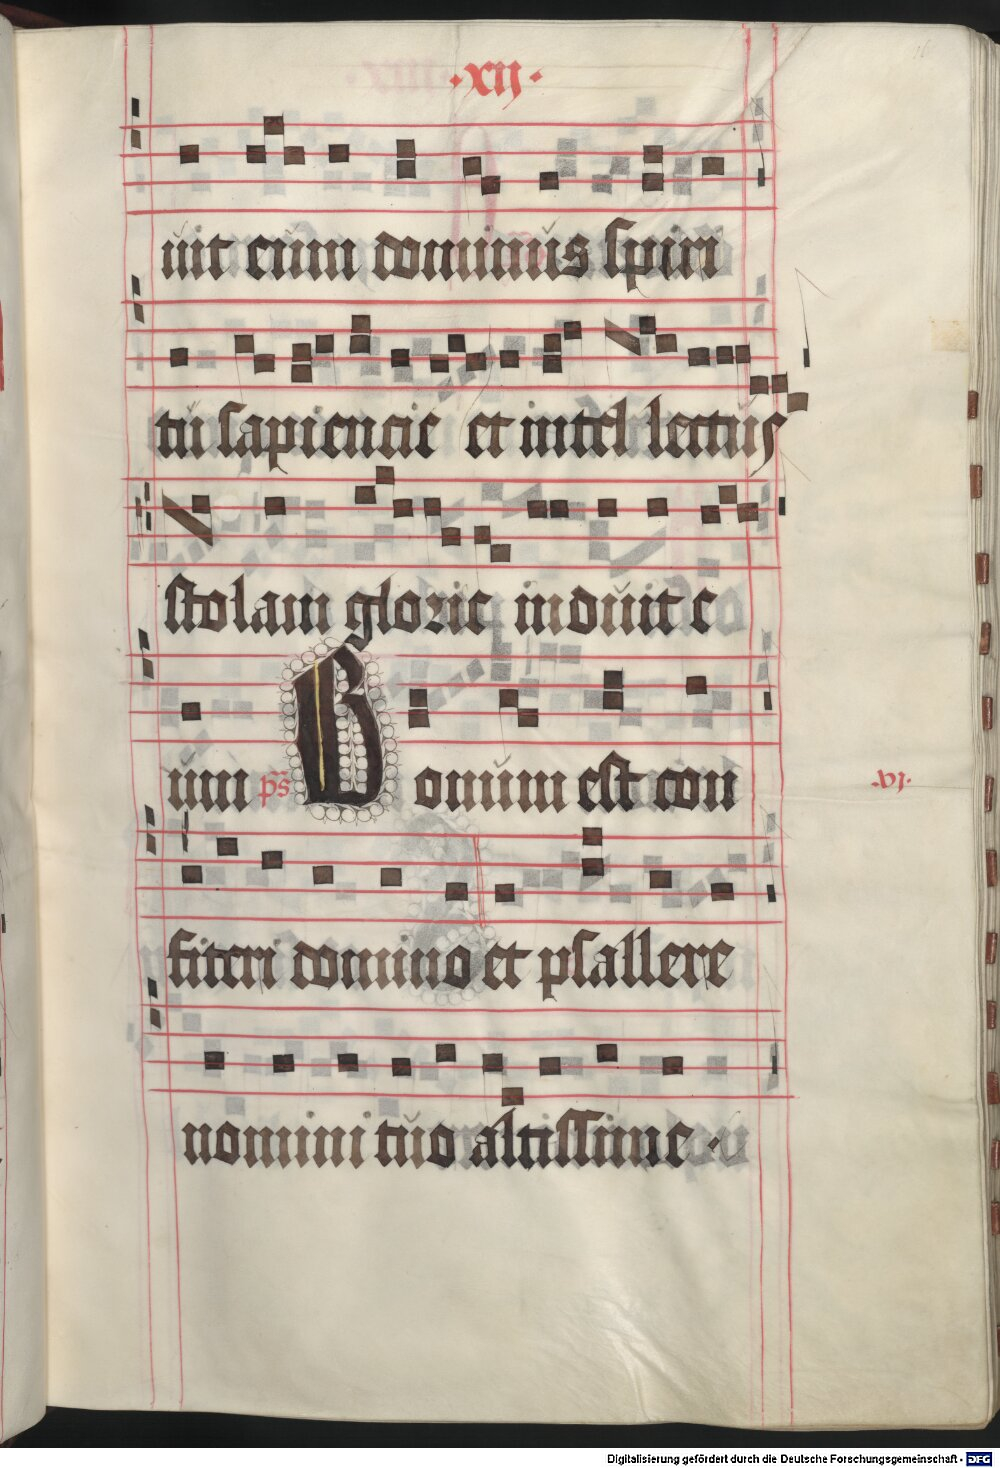 ·xij·
uit eum dominus spiri
tu sapiencie et intel lectus
stolam glorie induit e
um ps Bonum est con
·vi·
fiteri domino et psallere
nomini tuo altissime ·
Digitalisierung gefördert durch die Deutsche Forschungsgemeinschaft - DFG